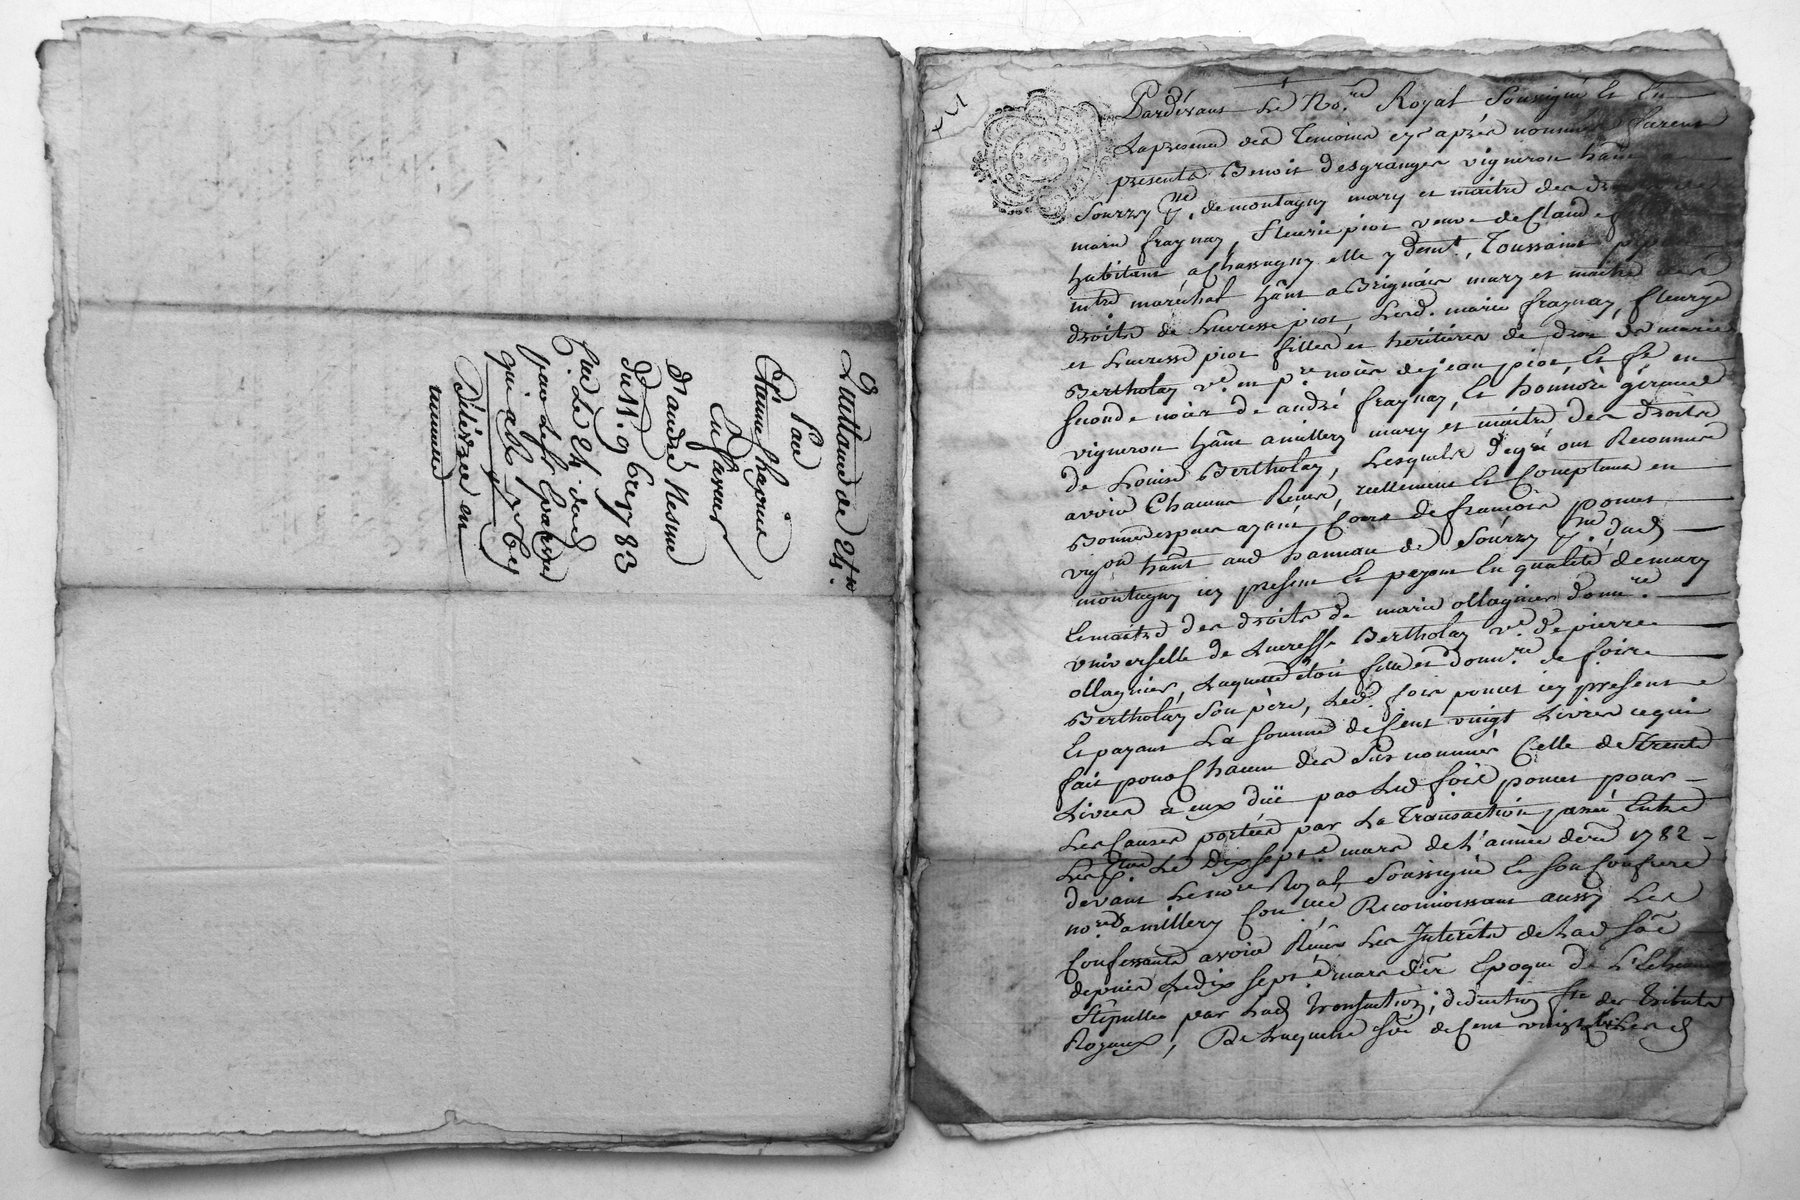 Quittance de 24#
Par
Etienne
d'andré
du 11. 9bre 1783
Par le 24 dud
qui a
Délivrée en
minutte
Pardevant Le No.re Royal Soussigné Et En
La presence des Temoins cy après nommés furent
presents Benoit Desgranges vigneron hânt a
Sourzy p.sse de montagny mary et maitre des droits de
marie fraynay, fleurie piot veuve de Claude
habitant a Chassagny elle y dem.t, Toussaint
m.tre maréchal hânt a Brignais mary et maitre des
droits de Lucresse piot, Led. marie fraynay, fleurye
et Lucresse piot filles et héritières de droit de marie
Bertholay v.e en p.re noces de jean piot, Et f.e en
seconde noces de andré fraynay, Et honnoré géraud
vigneron hânt a millery mary et maitre des droits
de Louise Bertholay, Lesquels de gré ont Reconnu
avoir Chacun Recu, reellement Et Comptant en
Bonnes especes ayant Cours de francois poncet
vig.on hânt aud hameau de Sourzy p.sse dud
montagny icy present Et payant En qualité de mary
Et maitre des droits de marie ollagnier donn.re
universelle de Lucresse Bertholay v.e de pierre
ollagnier, Laquelle etoit fille et donn.re de foire
Bertholay son père, Led. fois poncet icy present
Et payant La somme de Cent vingt Livres ce qui
fait pour Chacun des sus nommés Celle de Trente
Livres a eux düe par Led fois poncet pour
Les Causes portées par La Transaction passée Entre
Les p.ties Le dix sept mars de L'année dere 1782
devant Le no.re Royal Soussigné Et son Confrere
no.res a millery Con.lée Reconnoissant aussy Les
Confessants avoir Recu Les Interêts de Lad sôe
depuis Le dix sept mars der Epoque de L'Echeance
Stipullée par Lad Transaction; deduction f.te des Tributs
Royaux, De Laquelle sôe de Cent vingt Livres